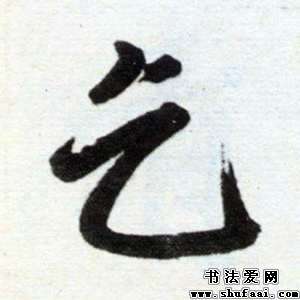 乞
书法爱网
www.shufaai.com